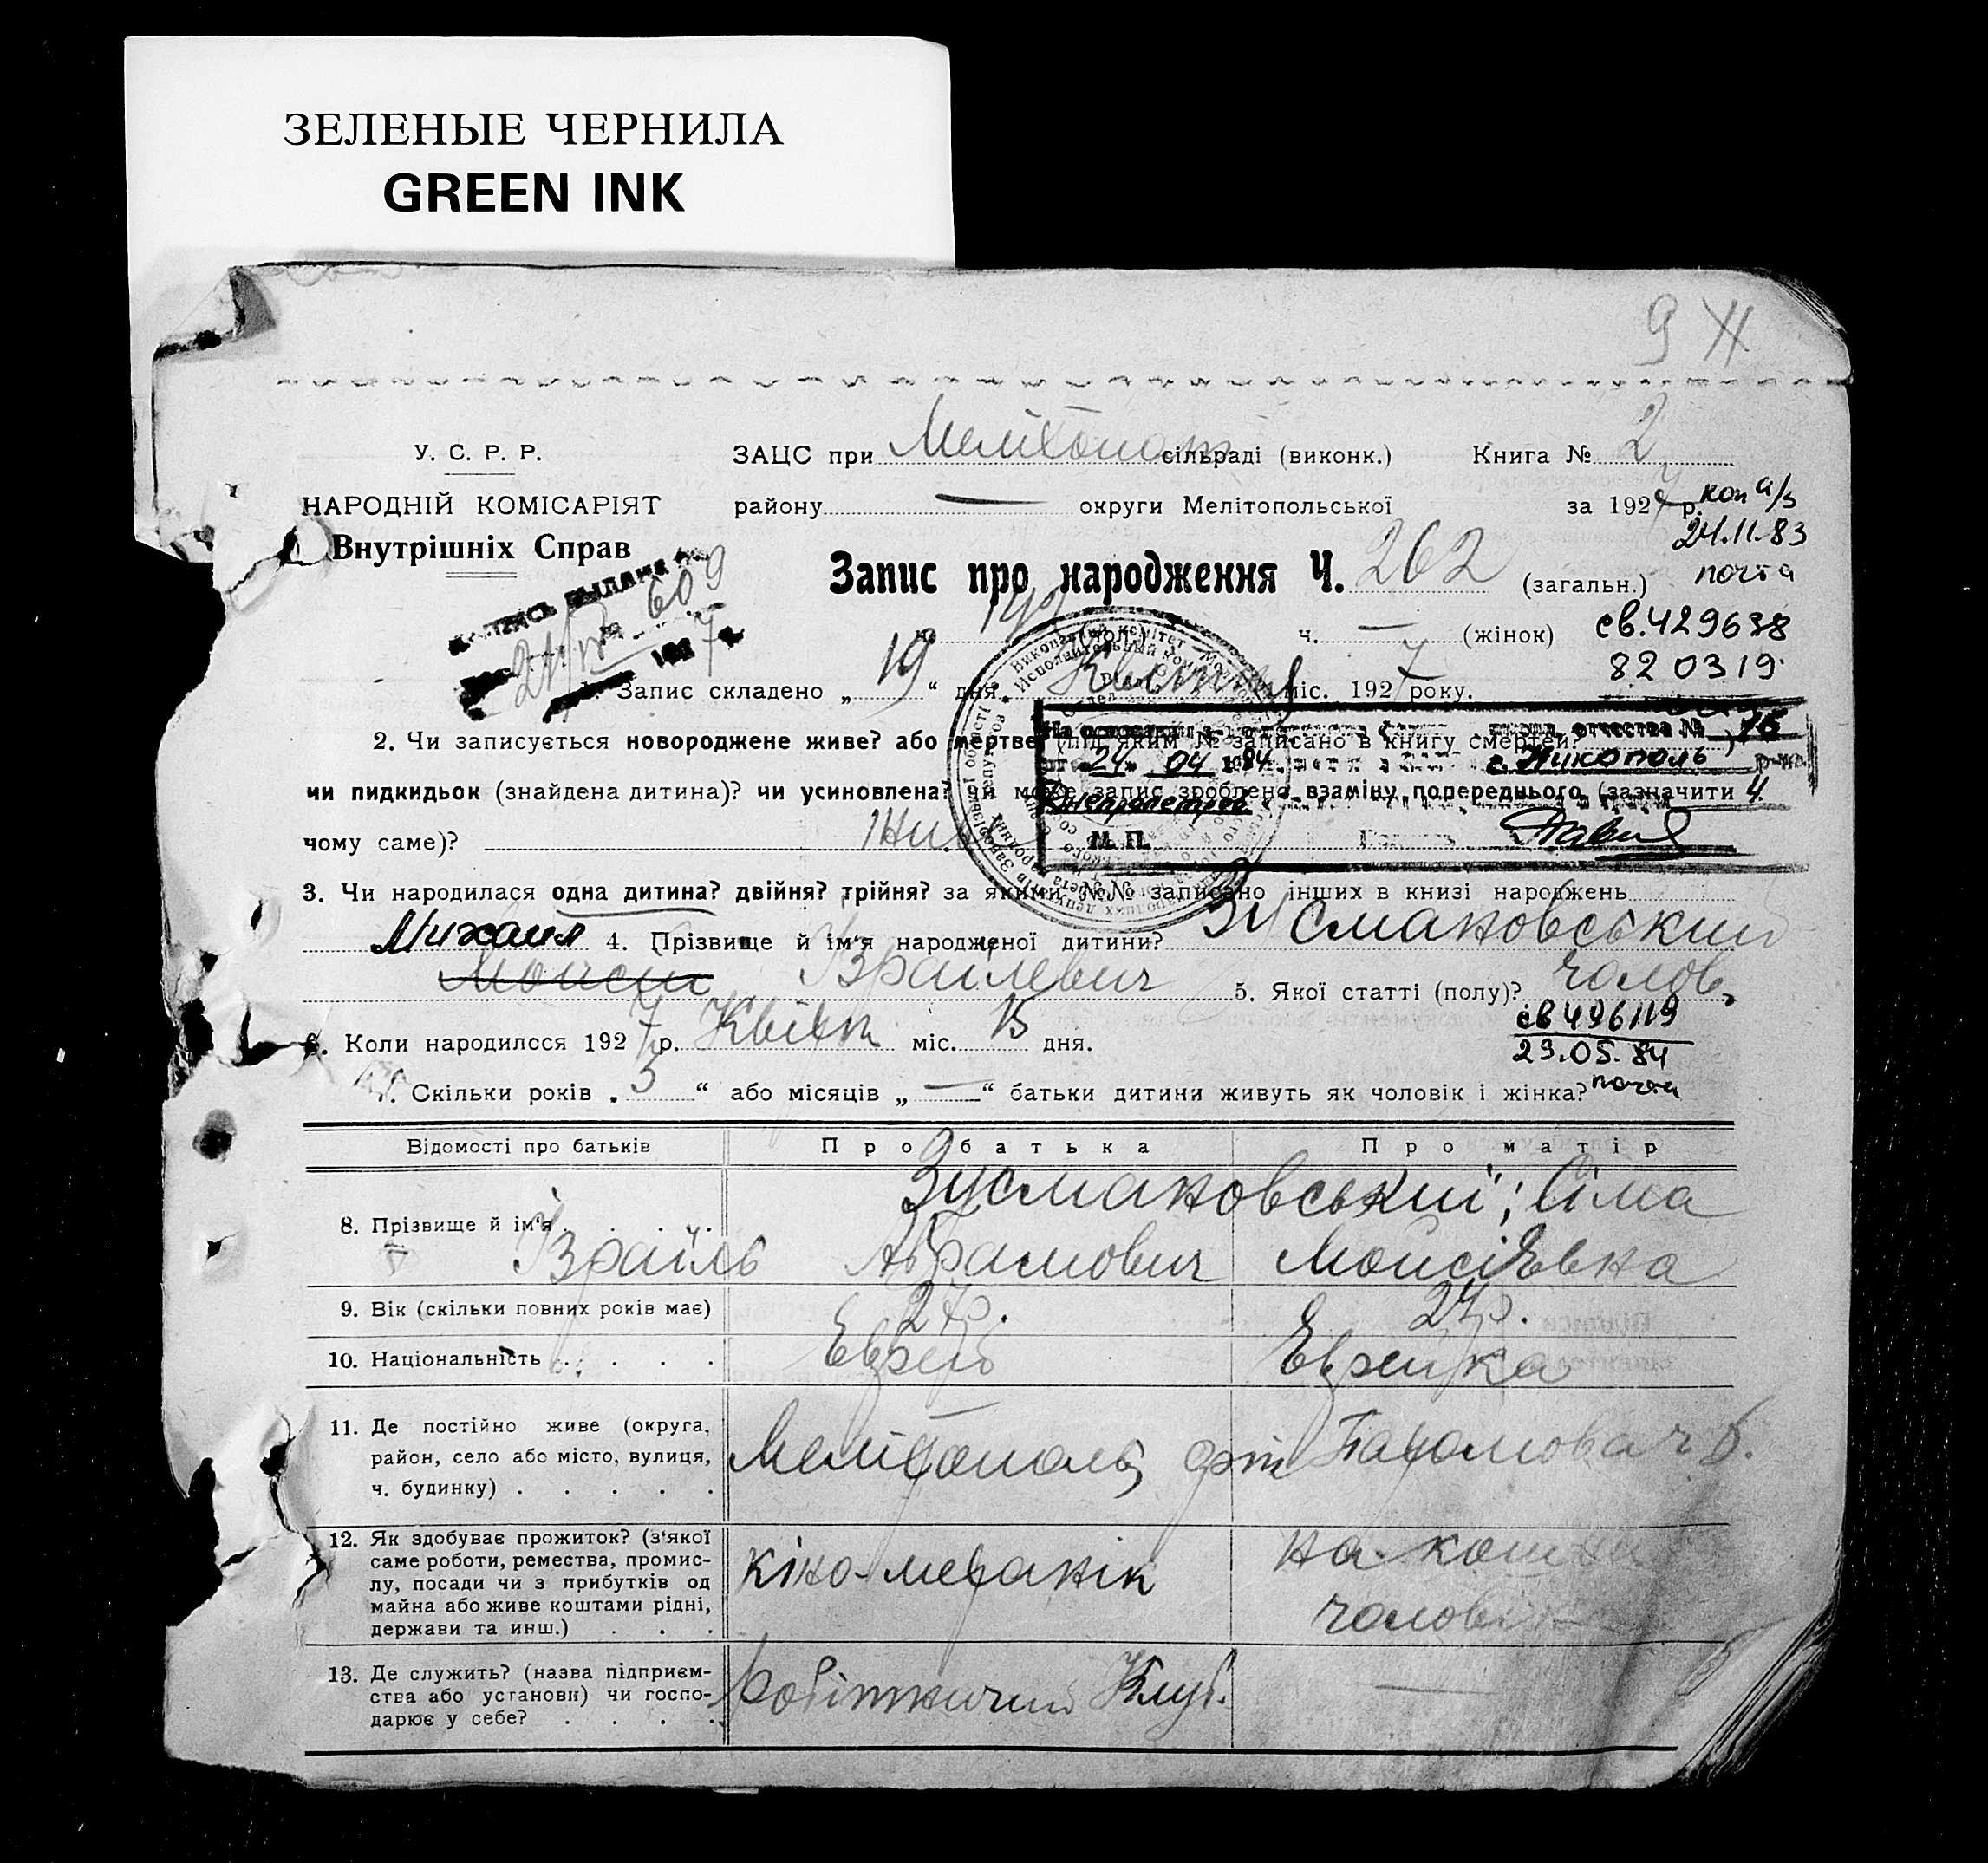 ЗЕЛЕНЫЕ ЧЕРНИЛА
GREEN INK
9
У. С. Р. Р.
ЗАЦС при Мелітопол сільраді (виконк.) Книга № 2
НАРОДНІЙ КОМІСАРІЯТ
району — округи Мелітопольської за 1927 р.
коп а/з
24.11.83
почта
Внутрішніх Справ
Запис про народження Ч. 262 (загальн.)
609
ч. 142 (чол.) ч. — (жінок)
св. 429638
820319.
1. Запис складено „ 19 “ дня Квітня міс. 1927 року.
2. Чи записується новороджене живе? або мертве (під яким № записано в книгу смертей?)
На основании отчества № 15
24. 04 1984 г. Никополь
чи пидкидьок (знайдена дитина)? чи усиновлена? чи може запис зроблено взаміну попереднього (зазначити
чому саме)?
М. П.
3. Чи народилася одна дитина? двійня? трійня? за якими №№ записано інших в книзі народжень
Михаил 4. Прізвище й ім'я народженої дитини? Зусмановський
Мойсей Ізраїлевич 5. Якої статті (полу)? чолов.
6. Коли народилося 1927 р. Квітн міс. 15 дня.
св 496119
29.05.84
почта
7. Скільки років „ 3 “ або місяців „ — “ батьки дитини живуть як чоловік і жінка?
Відомості про батьків Про батька Про матір
8. Прізвище й ім'я . . . . Зусмановський; Сіма
Ізраїль Абрамович Мойсіївна
9. Вік (скільки повних років має) 27р. 27р.
10. Національність . . . . Еврей Еврейка
11. Де постійно живе (округа,
район, село або місто, вулиця,
ч. будинку) . . . . .
Мелітополь,
12. Як здобуває прожиток? (з'якої
саме роботи, ремества, промис-
лу, посади чи з прибутків од
майна або живе коштами рідні,
держави та инш.) . . .
кіно-механік
на кошти
чоловіка
13. Де служить? (назва підприєм-
ства або установи) чи госпо-
дарює у себе? . . . .
Робітничий Клуб. —